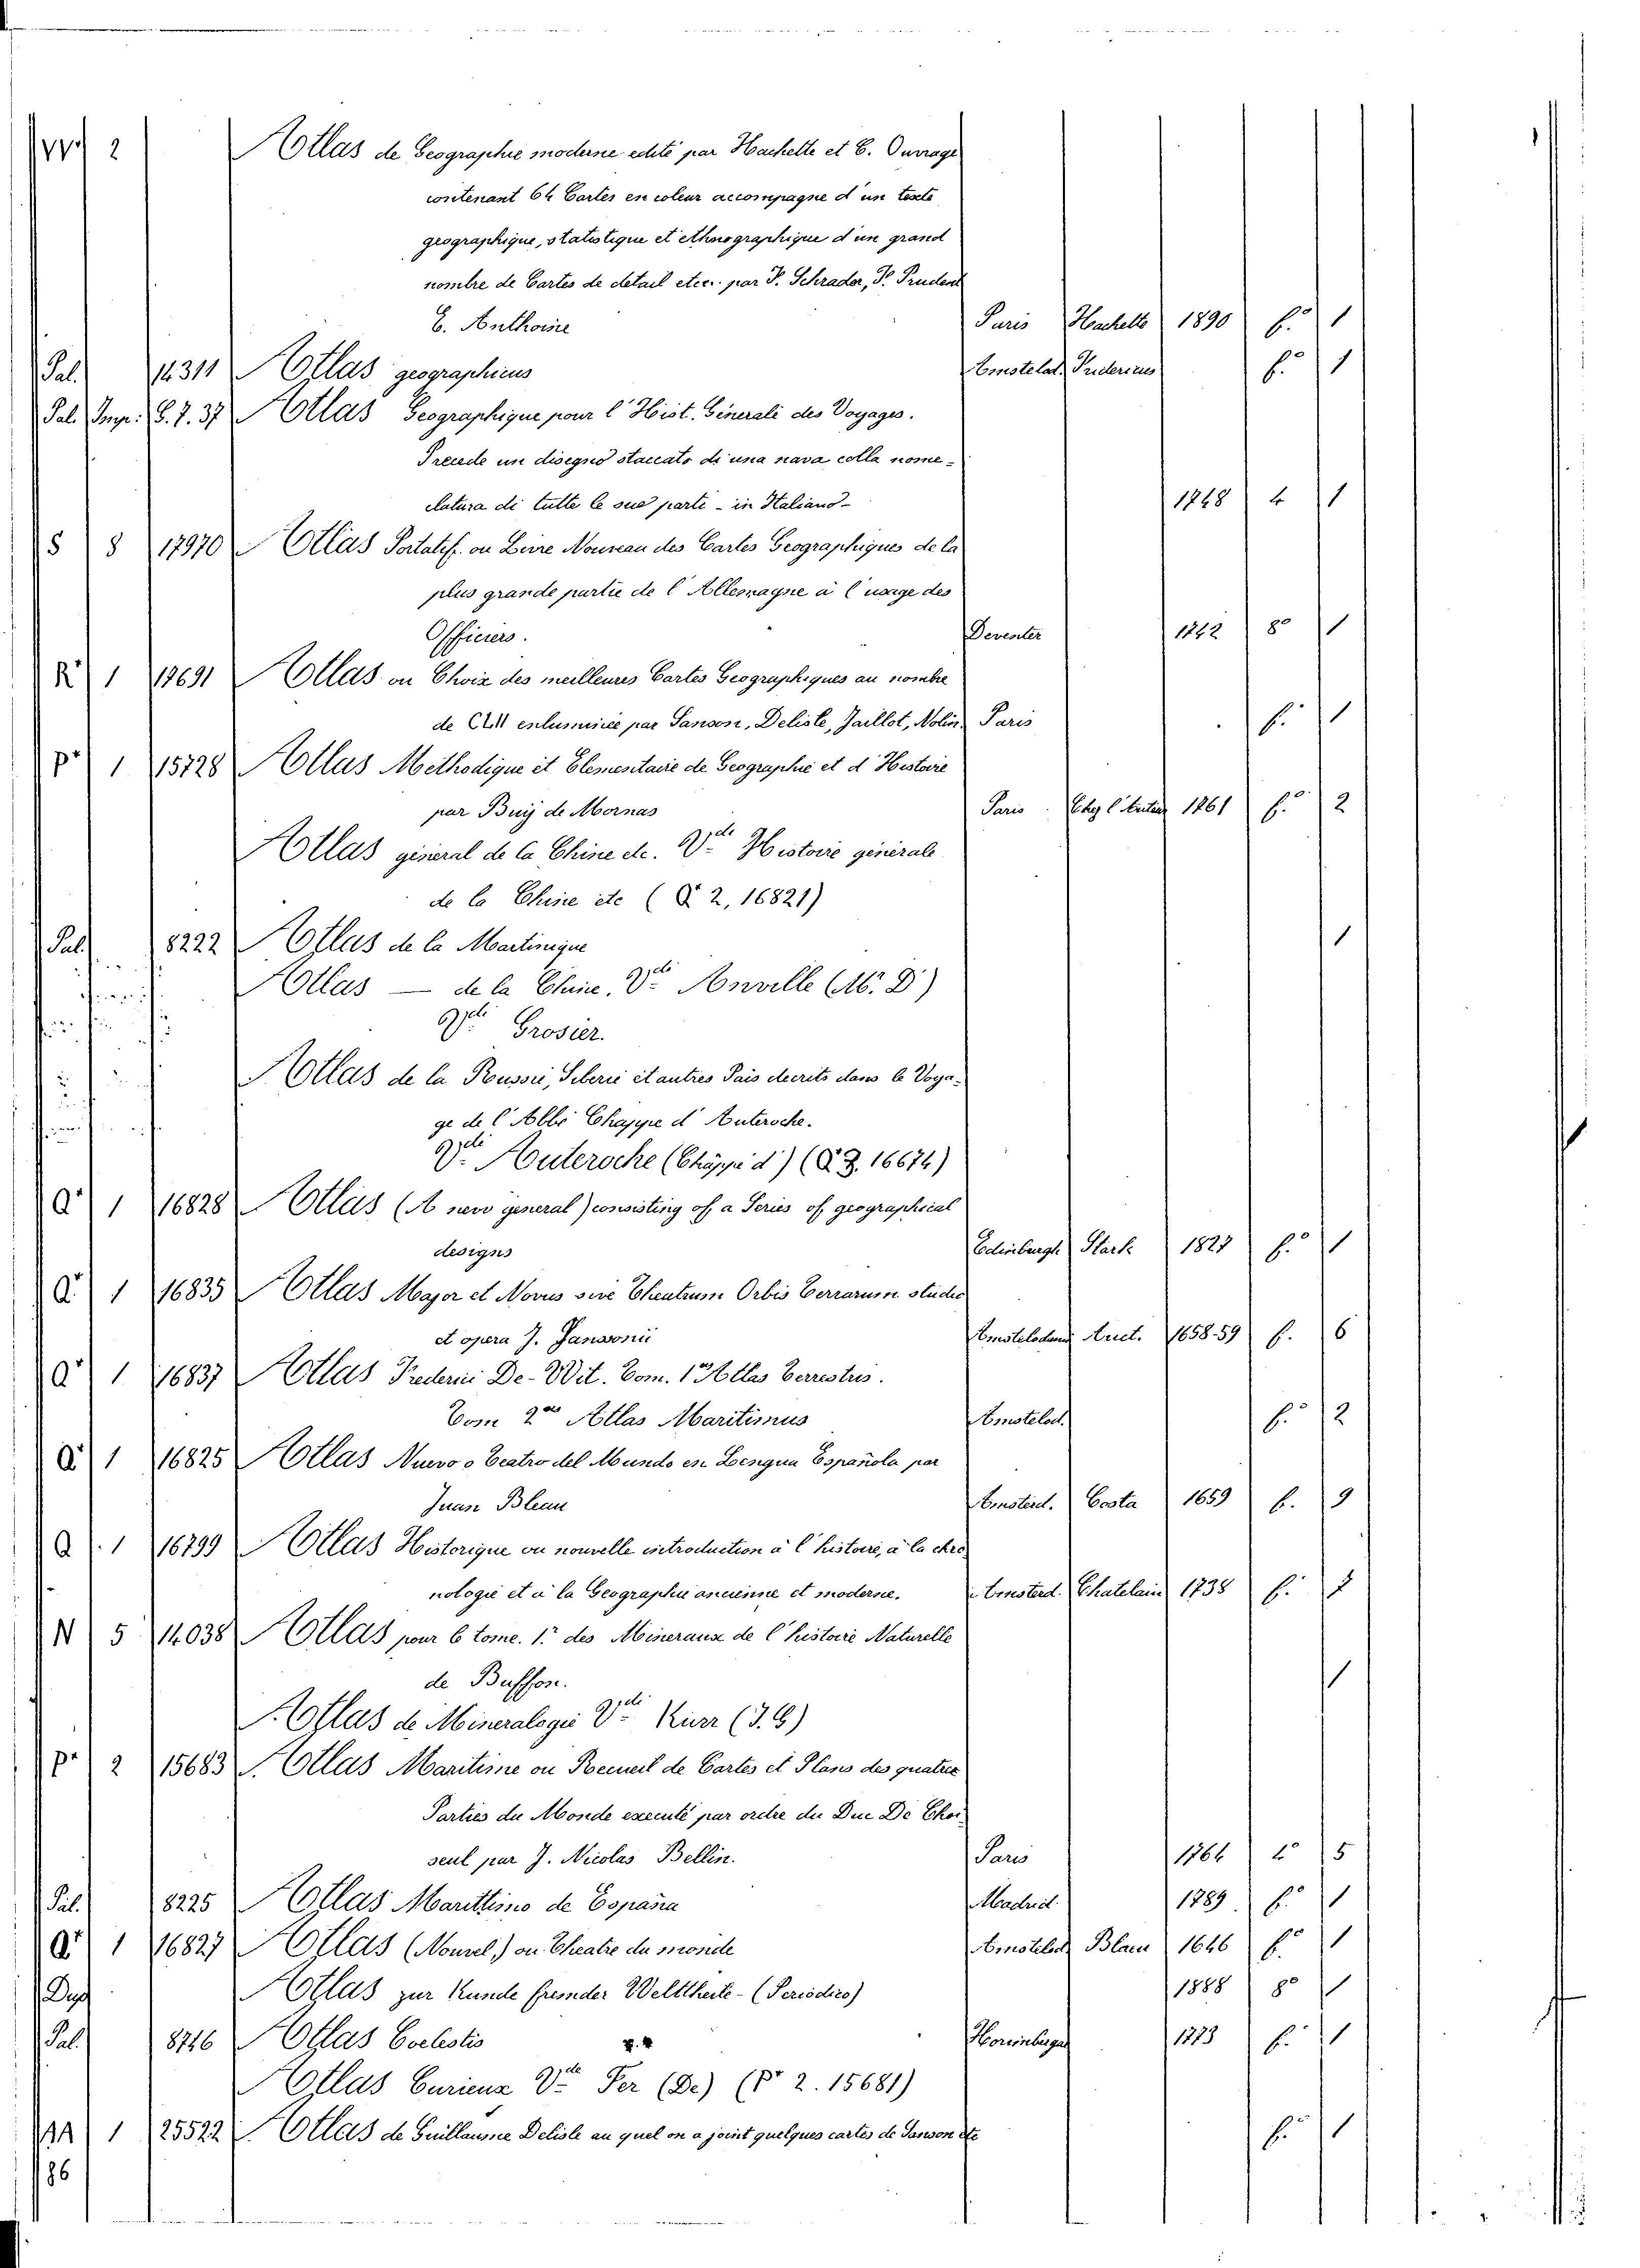 VV 2 Atlas de Geographie moderne edité par Hachette et C. Ouvrage
contenant 64 Cartes en coleur accompagne d'un texte
geographique, statistique et ethnographique d'un grand
nombre de Cartes de detail etcc. par F. Schrader, F. Prudent
E. Anthoine Paris Hachette 1890 f.º 1
Pal. 14311 Atlas geographicus Amstelod. Fridericus f.º 1
Pal. Imp. G. 7. 37 Atlas Geographique pour l'Hist. Generali des Voyages.
Precede un disegno staccato di una nava colla nome-
clatura di tutte le sue parti - in Italiano - 1748 4 1
S 8 17970 Atlas Portatif. ou Livre Nouveau des Cartes Geographiques de la
plus grande partie de l'Allemagne à l'usage des
Officiers. Deventer 1742 8º 1
R 1 17691 Atlas ou Choix des meilleures Cartes Geographiques au nombre
de enluminée par Sanson, Delisle, Jaillot, Nolin. Paris f. 1
P 1 15728 Atlas Methodique et Elementaire de Geographie et d'Histoire
par Buy de Mornas Paris Chez l'Auteur 1761 f.º 2
Atlas general de la Chine etc. V.de Histoire générale
de la Chine etc (Q 2, 16821)
Pal. 8222 Atlas de la Martinique 1
Atlas — de la Chine. V.di Anville (M. D')
V.di Grosier.
Atlas de la Roussie, Siberie et autres Pais decrits dans le Voya-
ge de l'Abbé Chappe d'Auteroche.
V.di Auteroche (Chappe d') (Q 3. 16674)
Q 1 16828 Atlas (A new general) consisting of a Series of geographical
designs Edinburgh Stark 1827 f.º 1
Q 1 16835 Atlas Major et Novus sive Theatrum Orbis Terrarum studio
et opera J. Janssonii Amstelodami Auct. 1658-59 f. 6
Q 1 16837 Atlas Frederici De-Wit. Tom. 1º Atlas Terrestris.
Tom 2do Atlas Maritimus Amstelod. f.º 2
Q 1 16825 Atlas Nuevo o Teatro del Mundo en Lengua Española por
Juan Bleau Amsterd. Costa 1659 f. 9
Q 1 16799 Atlas Historique ou nouvelle introduction à l'histoire, à la chro-
nologie et à la Geographie ancienne et moderne. Amsterd. Chatelain 1738 f. 7
N 5 14038 Atlas pour 6 tome. 1.º des Mineraux de l'histoire Naturelle
de Buffon. 1
Atlas de Mineralogie V.di Kurr (J. G)
P 2 15683 Atlas Maritime ou Recueil de Cartes et Plans des quatre
Parties du Monde executé par ordre du Duc De Choi-
seul par J. Nicolas Bellin. Paris 1764 4º 5
Pal. 8225 Atlas Marittimo de España Madrid 1789 f.º 1
Q 1 16827 Atlas (Nouvel,) ou Theatre du monde Amstelod. Blaeu 1646 f.º 1
Dup Atlas zur Kunde fremder Welttheile - (Periodico) 1888 8º 1
Pal. 8746 Atlas Coelestis 1773 f. 1
Atlas Curieux V.de Fer (De) (P 2. 15681)
AA 1 25522 Atlas de Guillaume Delisle au quel on a joint quelques cartes de Sanson etc f.º 1
86